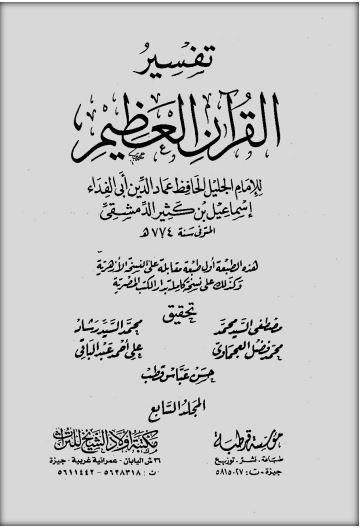 تفسير
القرآن العظيم
للإمام الجليل الحافظ عماد الدين أبي الفداء
إسماعيل بن كثير الدمشقي
المتوفى سنة ٧٧٤ هـ
هذه الطبعة أول طبعة مقابلة على النسخة الأزهرية
وكذلك على نسخة كاملة بدار الكتب المصرية
تحقيق
مصطفى السيد محمد محمد السيد رشاد
محمد فضل العجماوي علي أحمد عبد الباقي
حسن عباس قطب
المجلد السابع
مؤسسة قرطبة
طباعة - نشر - توزيع
جيزة - ت : ٥٨١٥٠٢٧
مكتبة أولاد الشيخ للتراث
٣٦ ش اليابان - عمرانية غربية - جيزة
ت : ٥٦٢٨٣١٨ - ٥٦١١٤٤٢